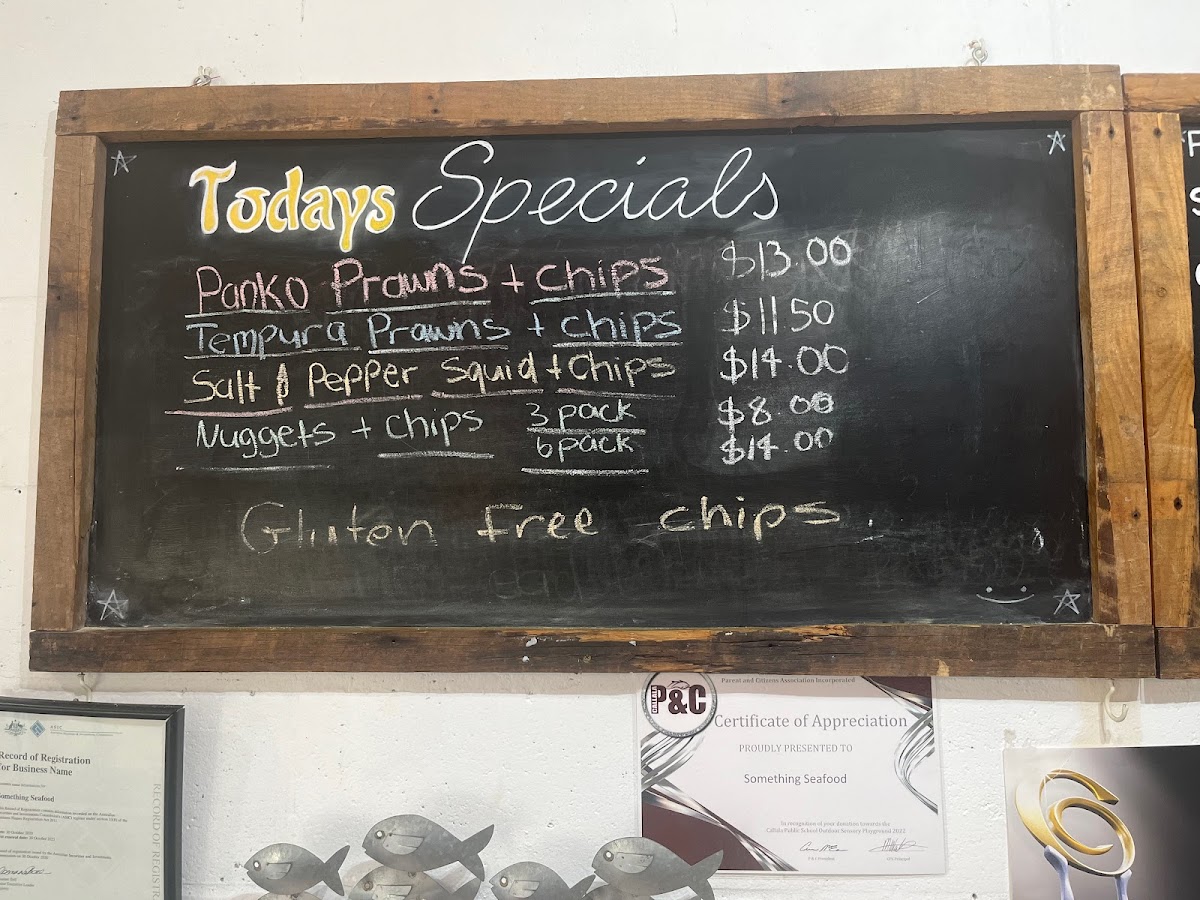 Todays Specials
Panko Prawns + chips $13.00
Tempura Prawns + chips $11 50
Salt & Pepper Squid + Chips $14.00
Nuggets + chips 3 pack $8.00
6 pack $14.00
Gluten free chips
Record of Registration
for Business Name
Something Seafood
RECORD OF REGISTR
Parent and Citizens Association Incorporated
P&C
Certificate of Appreciation
PROUDLY PRESENTED TO
Something Seafood
In recognition of your donation towards the
Callala Public School Outdoor Sensory Playground 2022